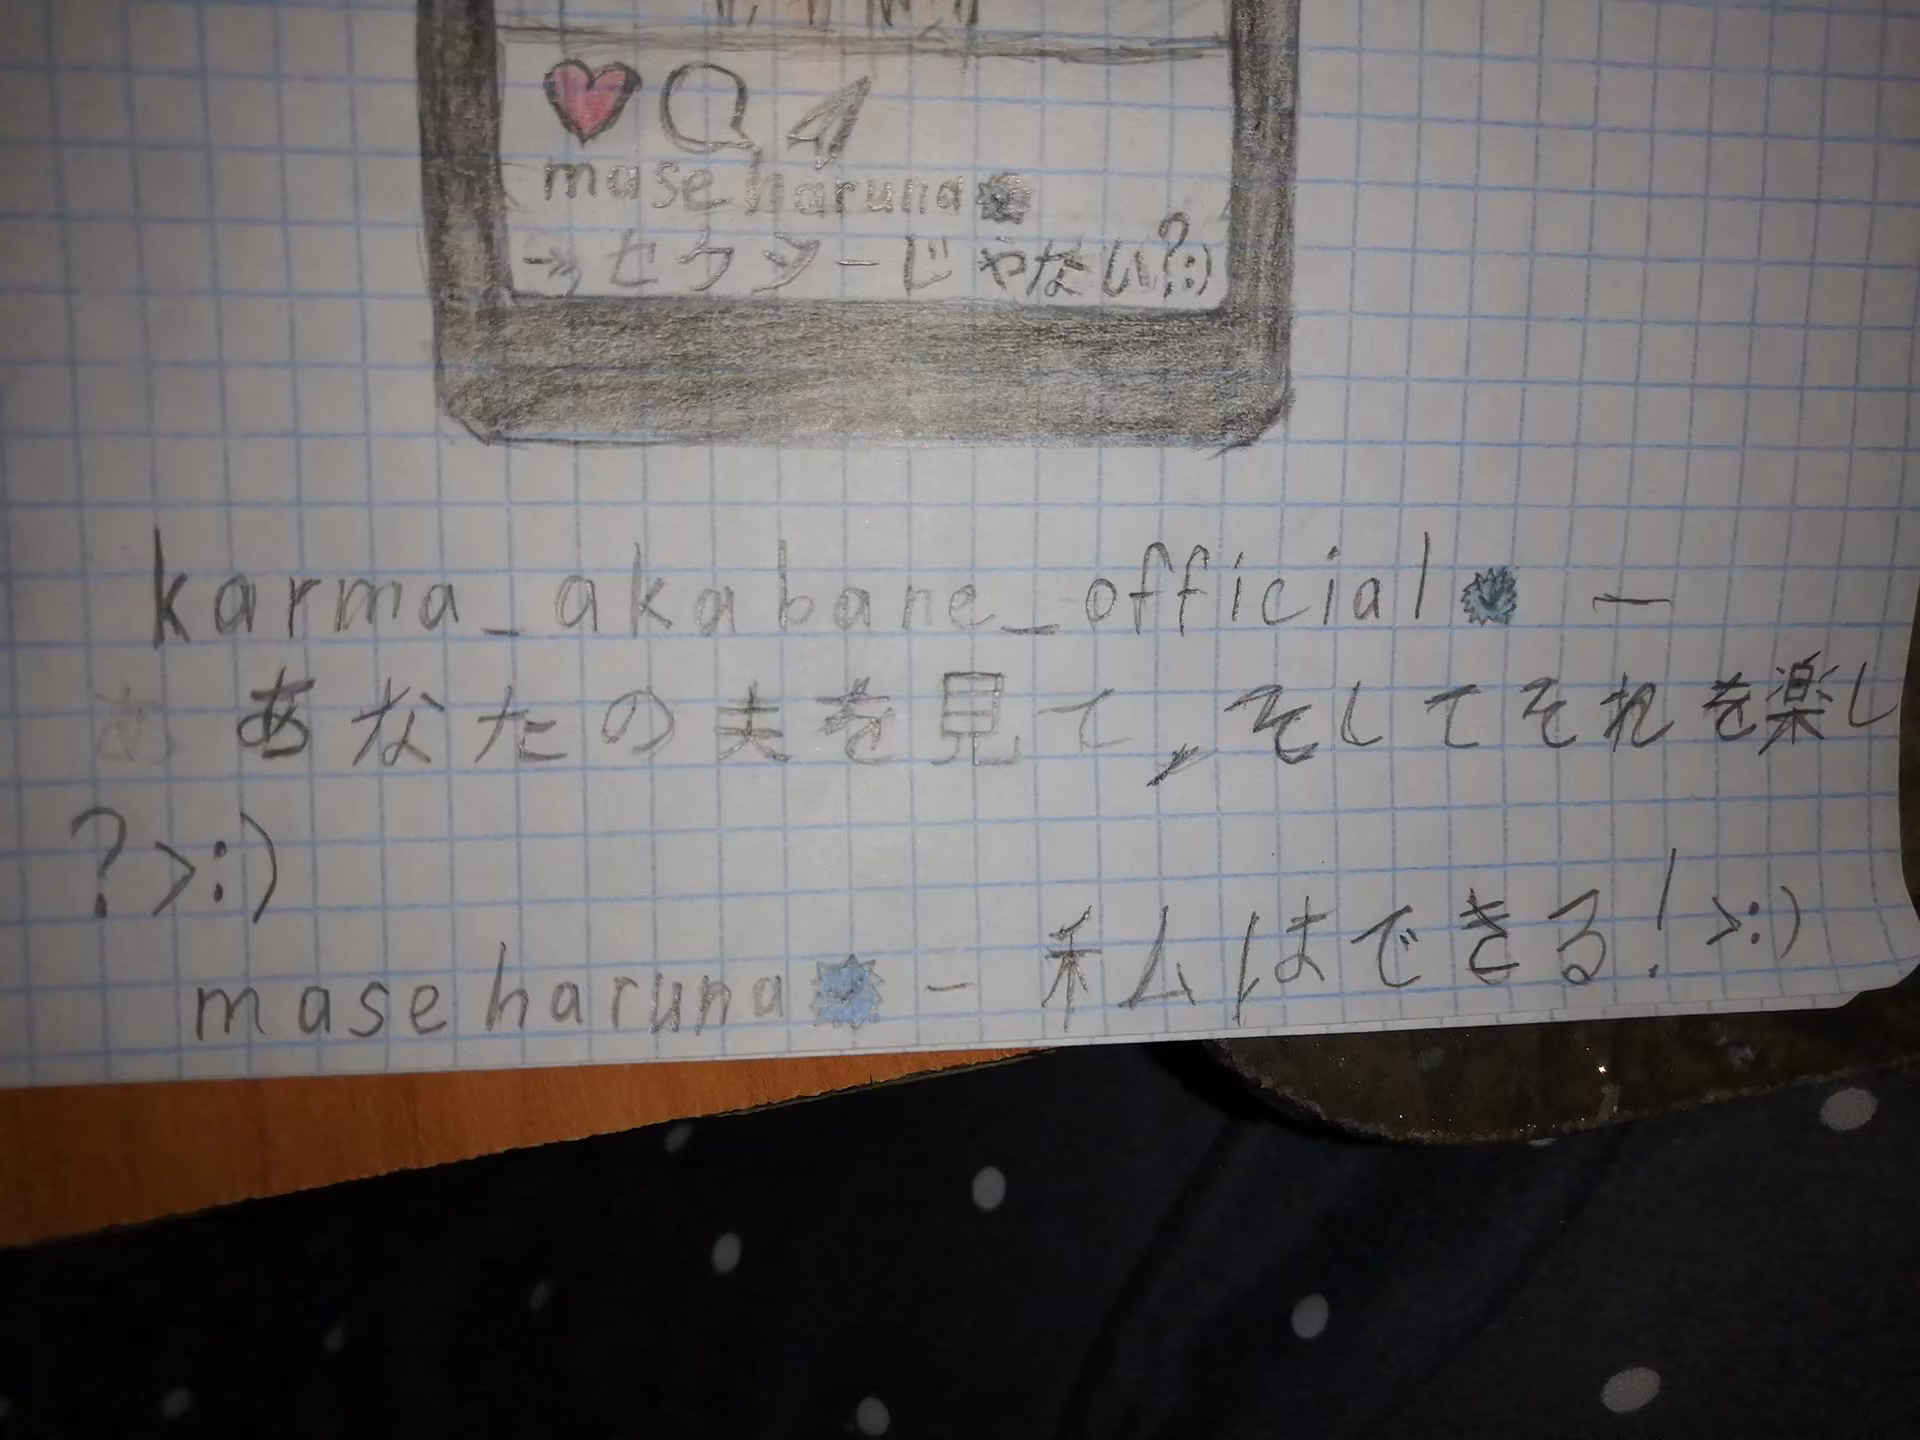 mase haruna
→» セクシーじゃない?:)
karma_akabane_official —
あ あなたの夫を見て, そしてそれを楽し
?>:)
mase haruna – 私はできる! >:)